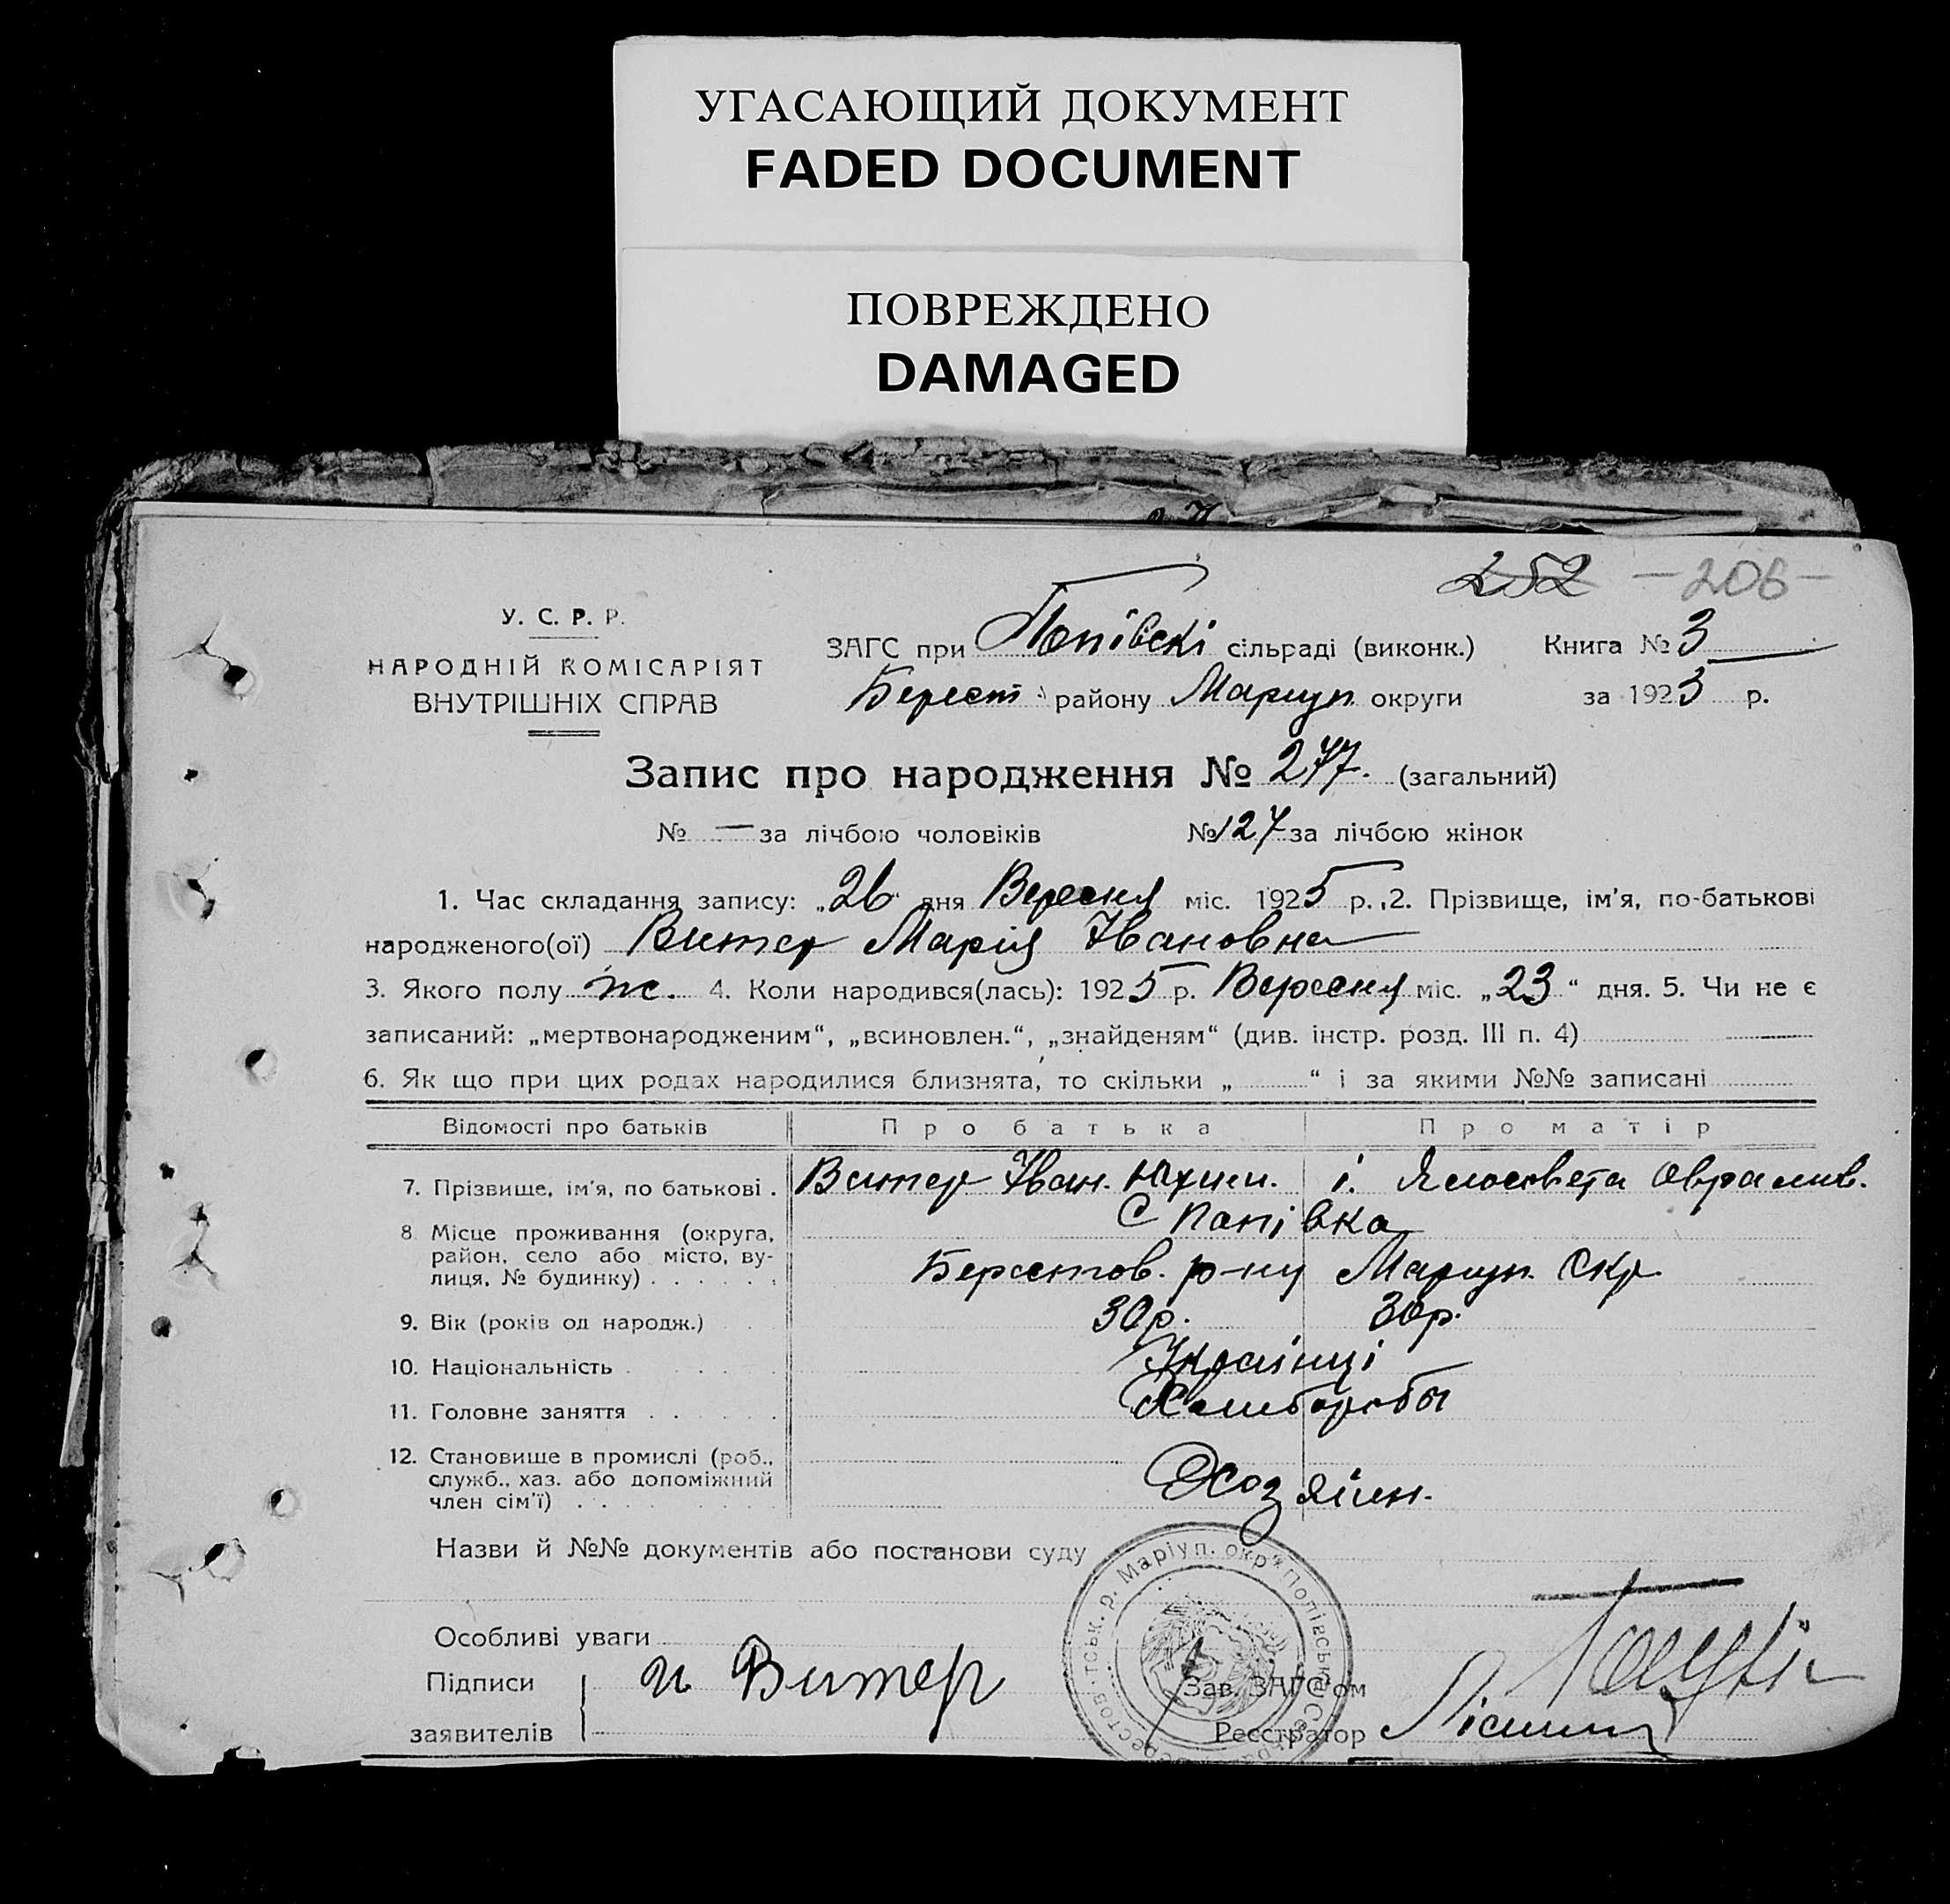 УГАСАЮЩИЙ ДОКУМЕНТ
FADED DOCUMENT
ПОВРЕЖДЕНО
DAMAGED
252 —206—
У. С. Р. Р.
НАРОДНІЙ КОМІСАРІЯТ
ВНУТРІШНІХ СПРАВ
ЗАГС при Попівскі сільраді (виконк.) Книга № 3
Берест. району Мариуп. округи за 1925 р.
Запис про народження № 277. (загальний)
№ — за лічбою чоловіків № 127 за лічбою жінок
1. Час складання запису: „26“ дня Вересня міс. 1925 р. 2. Прізвище, ім'я, по-батькові
народженого(ої) Витер Марія Івановна
3. Якого полу ж. 4. Коли народився(лась): 1925 р. Вересня міс. „23“ дня. 5. Чи не є
записаний: „мертвонародженим“, „всиновлен.“, „знайденям“ (див. інстр. розд. III п. 4)
6. Як що при цих родах народилися близнята, то скільки „ “ і за якими №№ записані
Відомості про батьків Про батька Про матір
7. Прізвище, ім'я, по батькові . Витер Іван. Юхим. і. Авраамив.
8 Місце проживання (округа, район, село або місто, ву- лиця, № будинку) . . . . . . С Папівка
Берестов. р-ну Мариуп. Окр.
9. Вік (років од народж.) 30р. 30р.
10. Національність . . . . . Українці
11. Головне заняття . . . . . Хлиборобы
12. Становище в промислі (роб., служб., хаз. або допоміжний член сім'ї) . . . . Хозяін.
Назви й №№ документів або постанови суду
Особливі уваги
Підписи и Витер Зав. ЗАГС'ом
заявителів Реєстратор
Маріуп. окр.